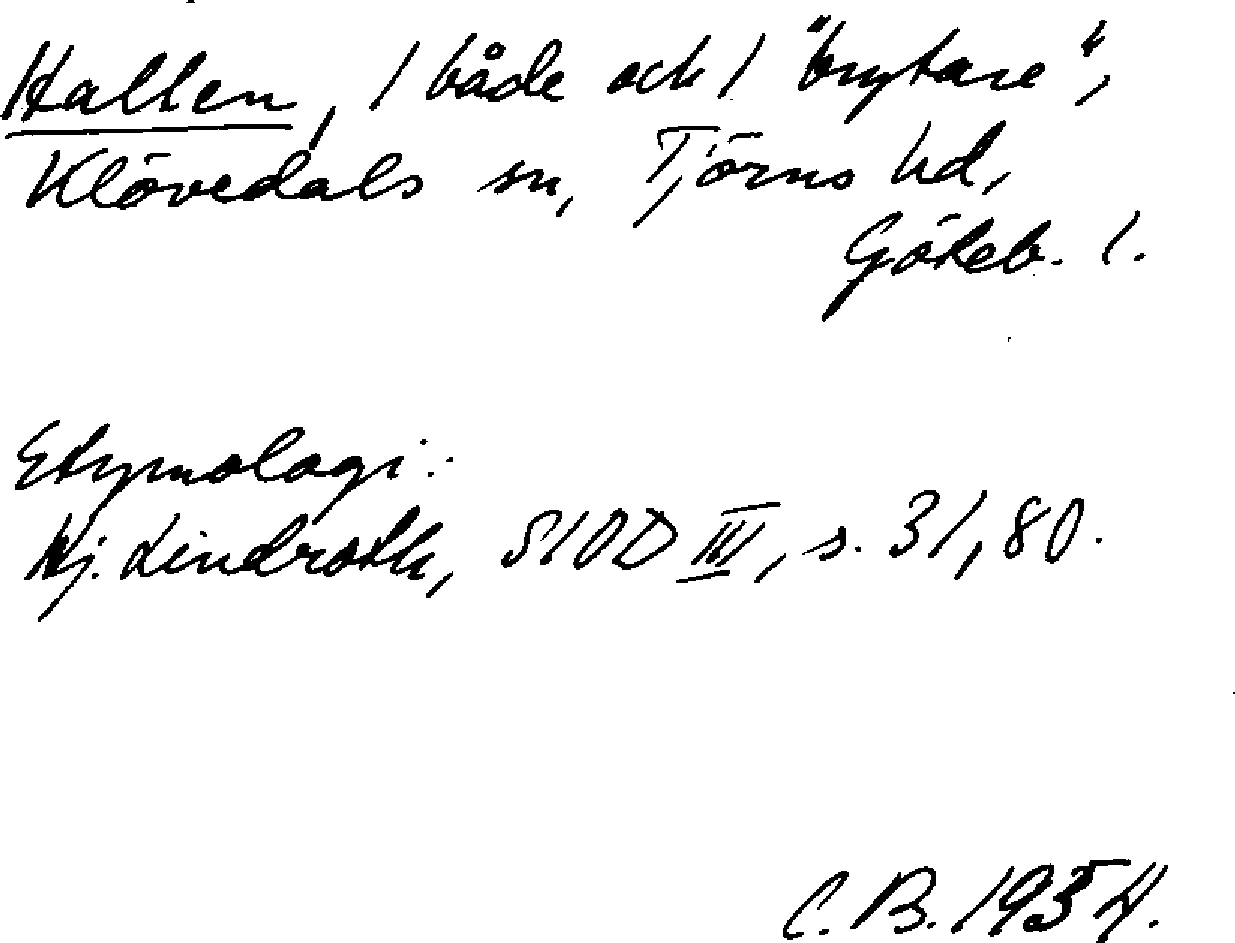 Hallen, 1 både och 1 "brytare",
Klövedals sn, Tjörns hd,
Göteb. l.
Etymologi:
Hj. Lindroth, SIOD III, s. 31, 80.
C. B. 1954.